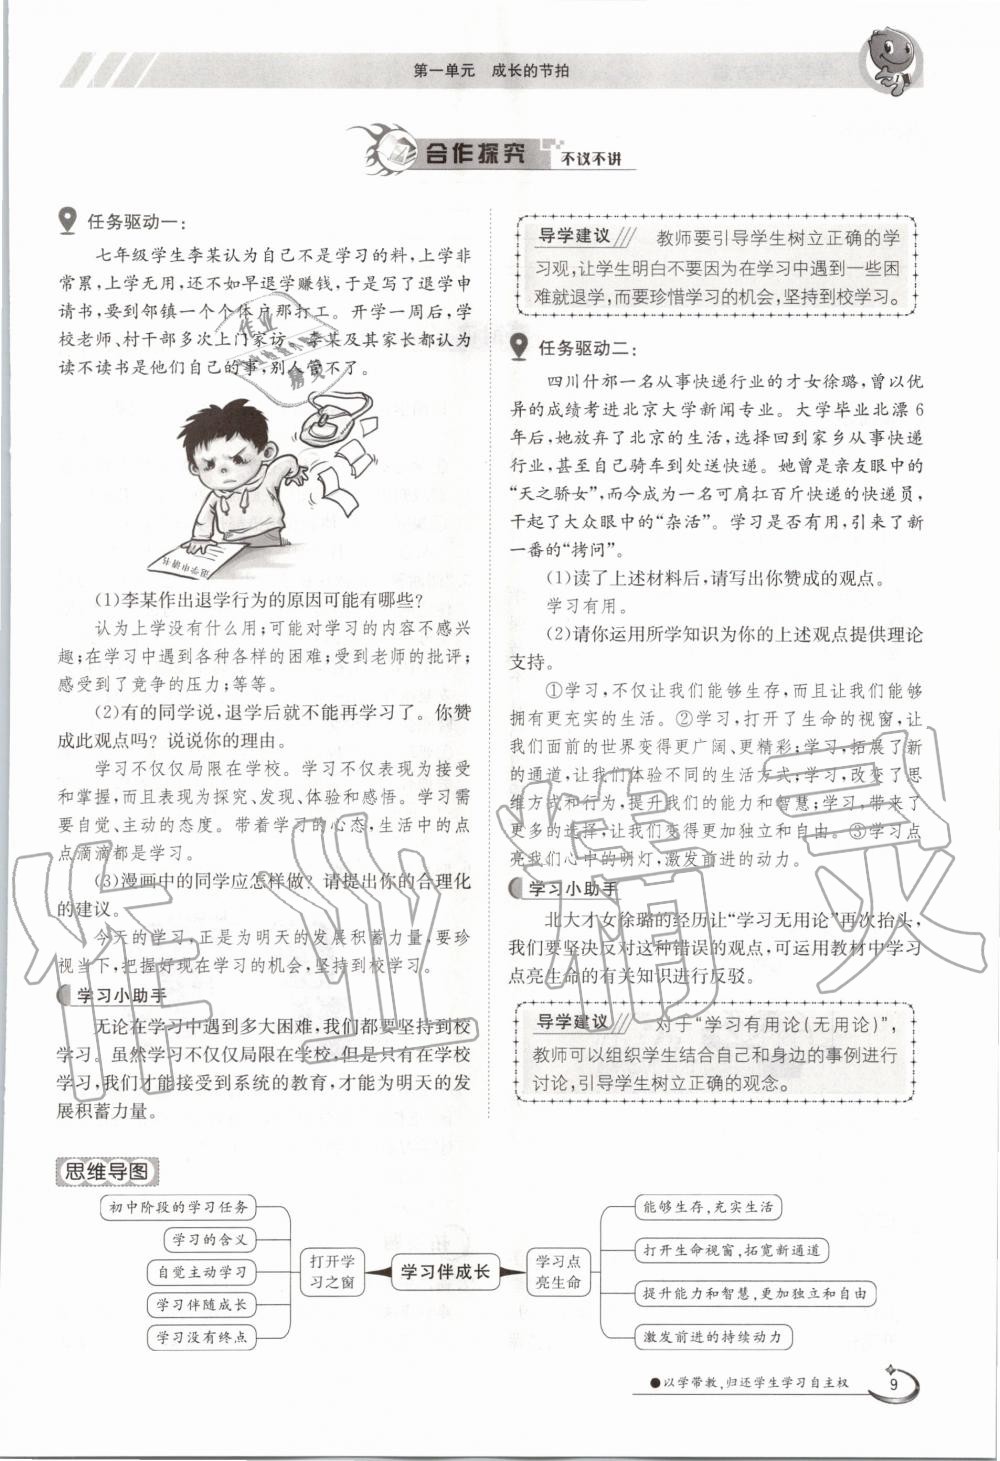 第一单元 成长的节拍
合作探究 不议不讲
任务驱动一：
七年级学生李某认为自己不是学习的料，上学非
常累，上学无用，还不如早退学赚钱，于是写了退学申
请书，要到邻镇一个个体户那打工。开学一周后，学
校老师、村干部多次上门家访，李某及其家长都认为
读不读书是他们自己的事，别人管不了。
退学申请书
(1)李某作出退学行为的原因可能有哪些？
认为上学没有什么用；可能对学习的内容不感兴
趣；在学习中遇到各种各样的困难；受到老师的批评；
感受到了竞争的压力；等等。
(2)有的同学说，退学后就不能再学习了。你赞
成此观点吗？说说你的理由。
学习不仅仅局限在学校。学习不仅表现为接受
和掌握，而且表现为探究、发现、体验和感悟。学习需
要自觉、主动的态度。带着学习的心态，生活中的点
点滴滴都是学习。
(3)漫画中的同学应怎样做？请提出你的合理化
的建议。
今天的学习，正是为明天的发展积蓄力量，要珍
视当下，把握好现在学习的机会，坚持到校学习。
学习小助手
无论在学习中遇到多大困难，我们都要坚持到校
学习。虽然学习不仅仅局限在学校，但是只有在学校
学习，我们才能接受到系统的教育，才能为明天的发
展积蓄力量。
导学建议 教师要引导学生树立正确的学
习观，让学生明白不要因为在学习中遇到一些困
难就退学，而要珍惜学习的机会，坚持到校学习。
任务驱动二：
四川什邡一名从事快递行业的才女徐璐，曾以优
异的成绩考进北京大学新闻专业。大学毕业北漂 6
年后，她放弃了北京的生活，选择回到家乡从事快递
行业，甚至自己骑车到处送快递。她曾是亲友眼中的
“天之骄女”，而今成为一名可肩扛百斤快递的快递员，
干起了大众眼中的“杂活”。学习是否有用，引来了新
一番的“拷问”。
(1)读了上述材料后，请写出你赞成的观点。
学习有用。
(2)请你运用所学知识为你的上述观点提供理论
支持。
①学习，不仅让我们能够生存，而且让我们能够
拥有更充实的生活。②学习，打开了生命的视窗，让
我们面前的世界变得更广阔、更精彩；学习，拓展了新
的通道，让我们体验不同的生活方式；学习，改变了思
维方式和行为，提升我们的能力和智慧；学习，带来了
更多的选择，让我们变得更加独立和自由。③学习点
亮我们心中的明灯，激发前进的动力。
学习小助手
北大才女徐璐的经历让“学习无用论”再次抬头，
我们要坚决反对这种错误的观点，可运用教材中学习
点亮生命的有关知识进行反驳。
导学建议 对于“学习有用论(无用论)”，
教师可以组织学生结合自己和身边的事例进行
讨论，引导学生树立正确的观念。
思维导图
初中阶段的学习任务
学习的含义
自觉主动学习
学习伴随成长
学习没有终点
打开学
习之窗
学习伴成长
学习点
亮生命
能够生存，充实生活
打开生命视窗，拓宽新通道
提升能力和智慧，更加独立和自由
激发前进的持续动力
●以学带教，归还学生学习自主权
9
作业精灵